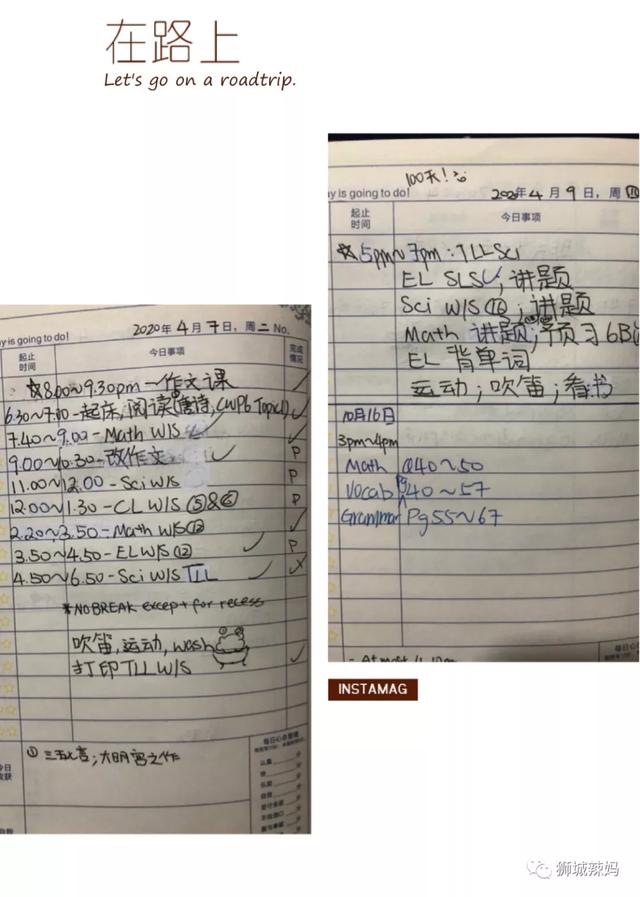 在路上
Let's go on a roadtrip.
y is going to do!
2020年 4月 7日, 周二 No.
起止时间 今日事项 完成情况
☆8.00~9.30pm—作文课 ✓
6.30~7.00-起床,阅读(唐诗,(WPb Topic1) ✓
7.40~9.00-Math W/S ✓
9.00~10.30-改作文 ✓ P
11.00~12.00-Sci W/S P
12.00~1.30-CL W/S ⑤&⑥ P
2.20~3.50-Math W/S ⑫ ✓
3.50~4.50-EL W/S ⑫ ✓ P
4.50~6.50-Sci W/S TLL ✓ ✗
*NO BREAK except for recess
吹笛,运动,wash
打印TLL W/S ✓
①三五七言;大明宫之作
每日心态管理
认真 分
乐观 分
自信 分
100天!
y is going to do!
2020年 4月 9日, 周四
起止时间 今日事项
☆5pm~7pm:TLL Sci
EL SLS✓,讲题
Sci W/S ⑯;讲题
Math 讲题;预习6B
EL 背单词
运动;吹笛;看书
10月16日
3pm~4pm
Math Q40~50
Vocab Pg40~57
Grammar Pg55~67
INSTAMAG
狮城辣妈